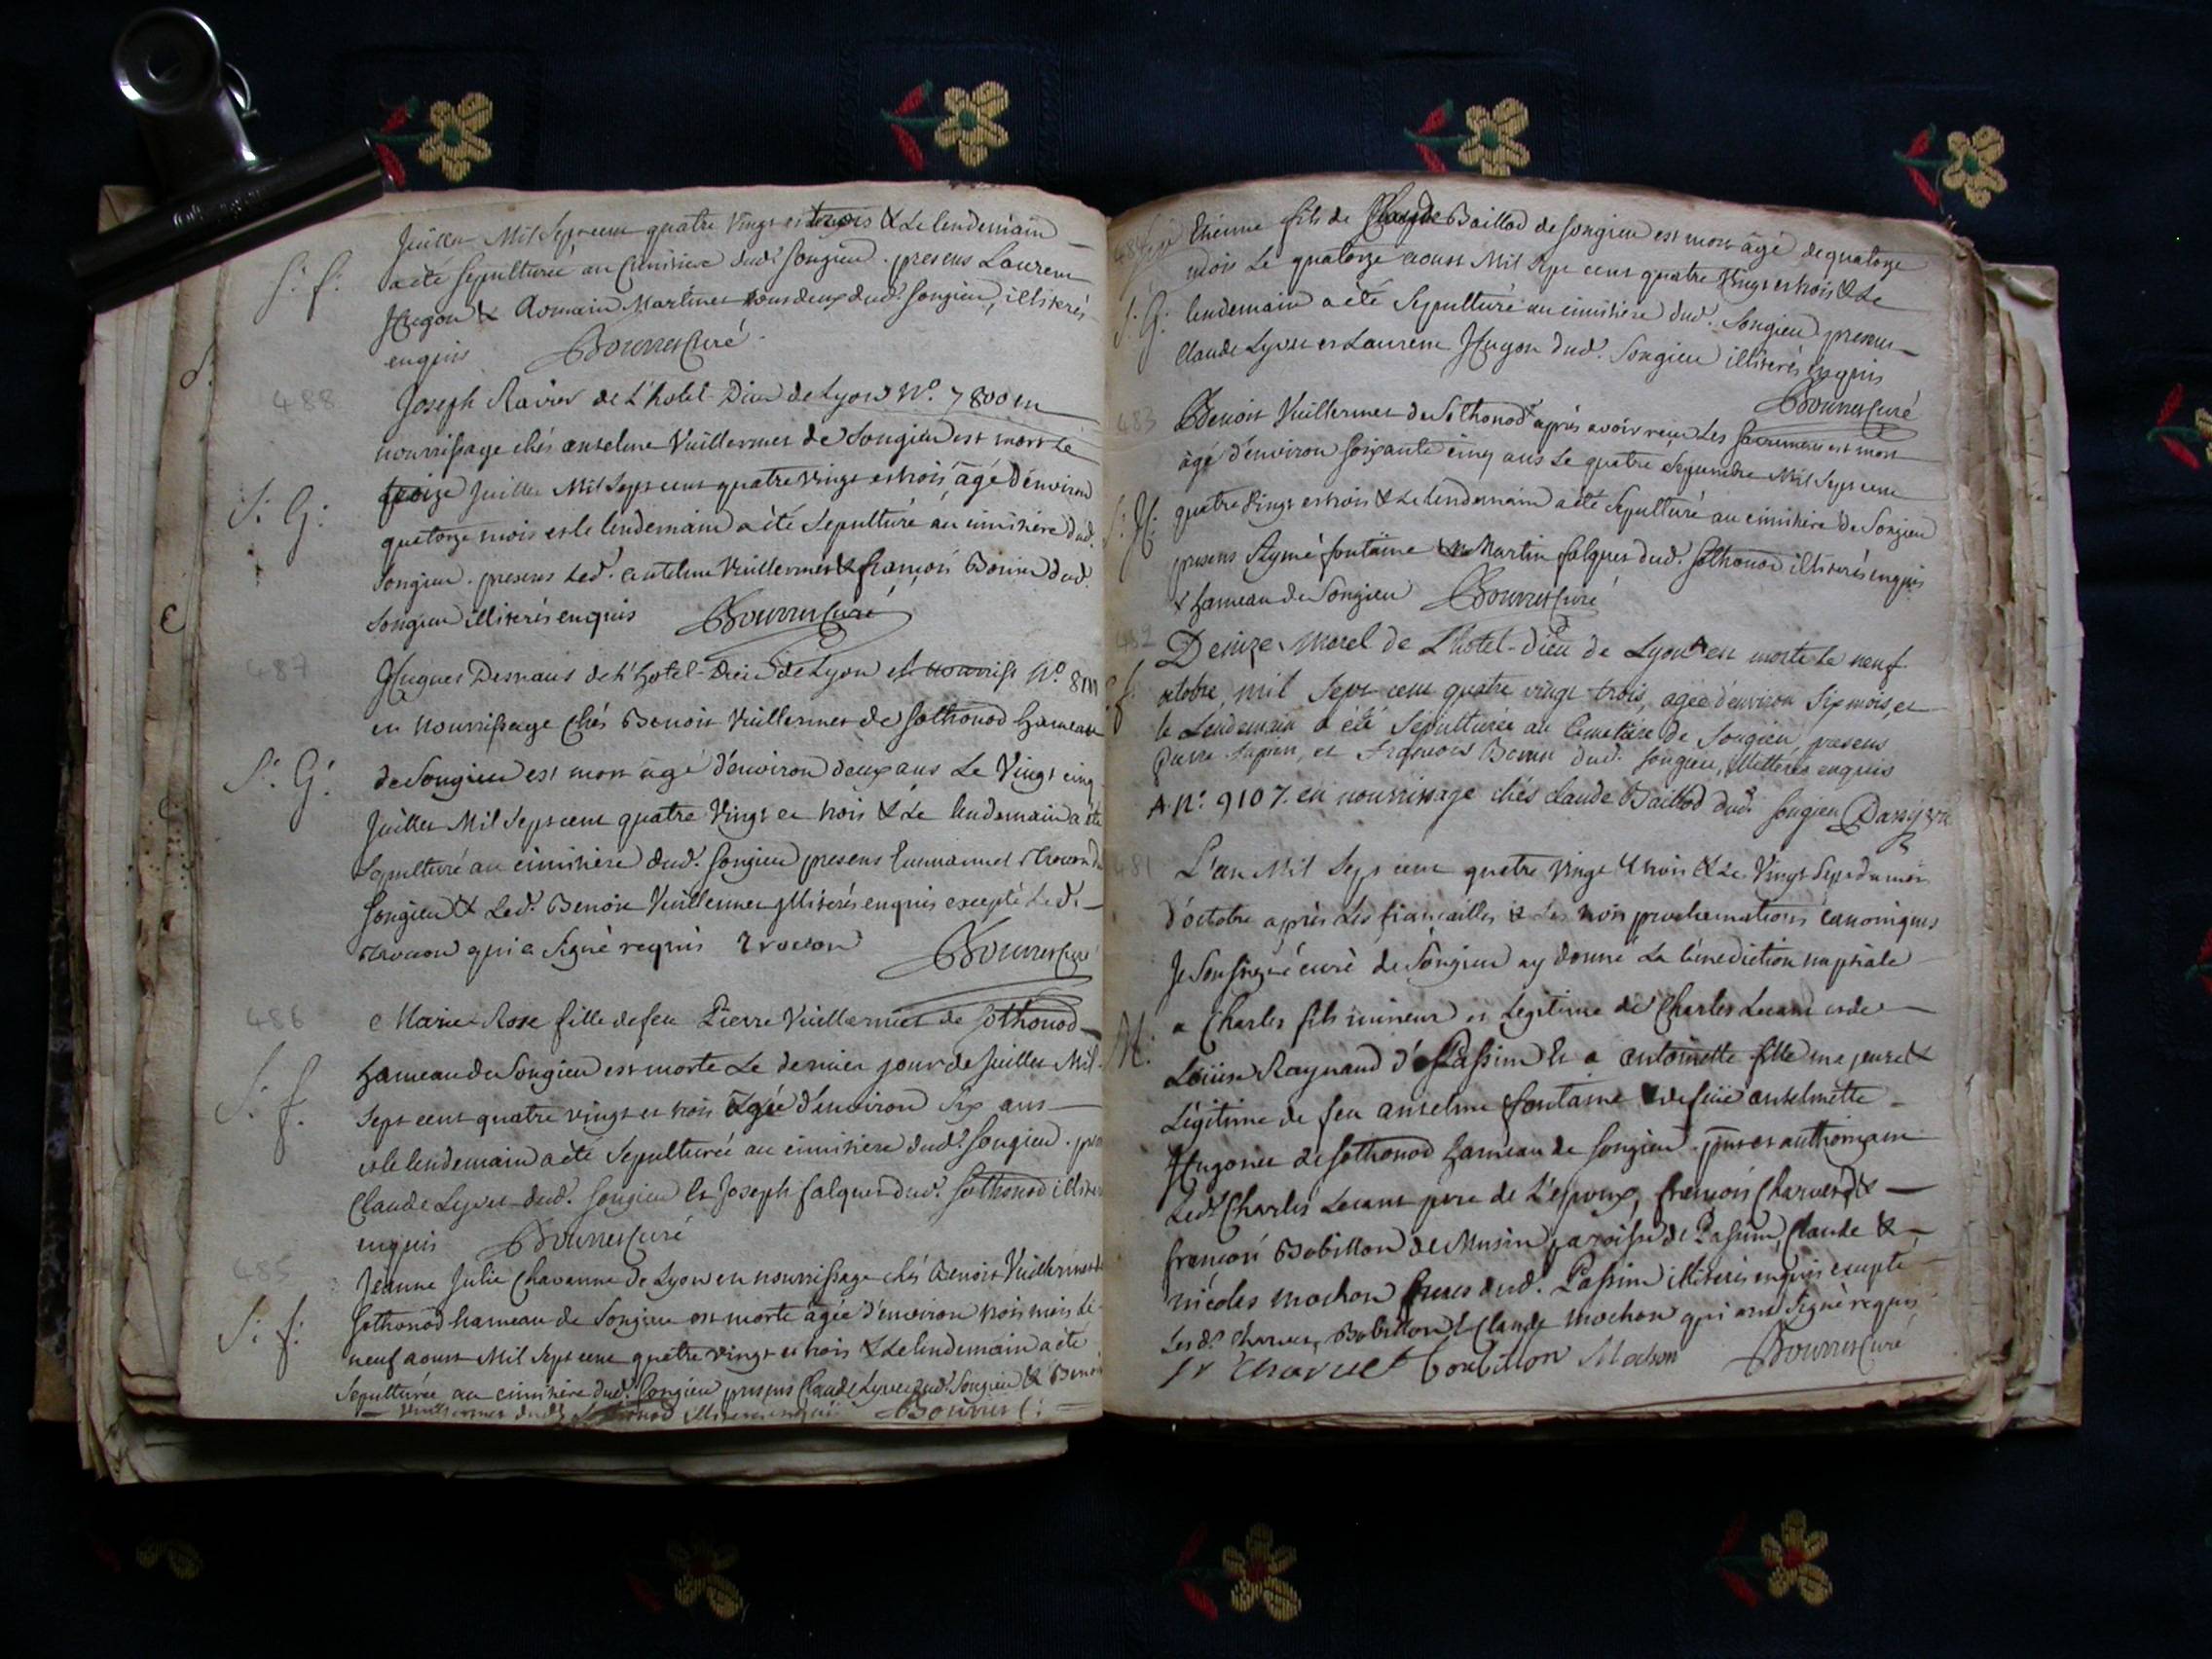 Juillet Mil Sept cent quatre Vingt et trois & Le lendemain
S: f: a été sepulturée au cimitiere dud.t Songieu . presens Laurent
Hugon & Romain Martinet tous deux dud.t Songieu, illiterés
enquis Bourret Curé
488 Joseph Ravier de L'hotel-Dieu de Lyon N.o 7800 en
nourrissage chés anselme Vuillermet de Songieu est mort Le
Juillet Mil Sept cent quatre vingt et trois âgé d'environ
S: G: quatorze mois et le lendemain a été Sepulturé au cimitiere dud.
Songieu . presens Led. Vuillermet & françois dud.
Songieu illiterés enquis Bourret Curé
487 Hugues de L'hotel-Dieu de Lyon N.o
en nourrissage chés Benoit Vuillermet de Sothonod hameau
S: G: de Songieu est mort âgé d'environ deux ans Le Vingt cinq
Juillet Mil Sept cent quatre Vingt et trois & Le lendemain a été
Sepulturé au cimitiere dud. Songieu presens
Songieu & Led. Benoit Vuillermet illiterés enquis excepté Led.
qui a Signé requis Bourret Curé
486 Marie-Rose fille de feu Pierre Vuillermet de Sothonod
S: f. hameau de Songieu est morte Le dernier jour de Juillet Mil
Sept cent quatre vingt et trois âgée d'environ Six ans
et le lendemain a été Sepulturée au cimitiere dud.t Songieu .
Claude Lyvet dud.t Songieu et Joseph falquet dud.t Sothonod
enquis Bourret Curé
485 Jeanne Julie Chavanne de Lyon en nourrissage chés Benoit Vuillermet
S: f: Sothonod hameau de Songieu est morte âgée d'environ trois mois Le
neuf aoust Mil Sept cent quatre vingt et trois & Le lendemain a été
Sepulturée au cimitiere dud.t Songieu presens Claude Lyvet dud.t Songieu & Benoit
Vuillermet dud.t Sothonod illiterés enquis Bourret C:
484 Etienne fils de Claude Baillod de Songieu est mort âgé de quatorze
mois Le quatorze aoust Mil Sept cent quatre Vingt et trois & Le
S: G: lendemain a été Sepulturé au cimitiere dud. Songieu presens
Claude Lyvet et Laurent Hugon dud. Songieu illiterés enquis
Bourret Curé
483 Benoit Vuillermet de Sothonod après avoir reçu Les Sacremens est mort
âgé d'environ soixante cinq ans Le quatre Septembre Mil Sept cent
S: H: quatre Vingt et trois & Le lendemain a été Sepulturé au cimitiere de Songieu
presens Aymé fontaine & Martin falquet dud. Sothonod illiterés enquis
& hameau de Songieu Bourret Curé
482 Denize Morel de L'hotel-Dieu de Lyon A est morte le neuf
S. f. octobre, mil sept cent quatre vingt trois, agée d'environ six mois, et
le Lendemain a été Sépulturée au Cimetière de Songieu, presens
Pierre et François dud. Songieu, illetterés enquis
A N.o 9107. en nourrissage chés Claude Baillod dud.t Songieu
481 L'an Mil Sept cent quatre Vingt & trois & Le Vingt Sept du mois
d'octobre après Les fiancailles & Les trois proclamations canoniques
Je soussigné curé de Songieu ay donné La bénédiction nuptiale
M: a Charles fils mineur et Légitime de Charles et de
Louise Raynaud de Passin & a antoinette fille majeure &
Légitime de feu anselme fontaine & de feüe anselmette
Hugonet de Sothonod hameau de Songieu . authorisant
Led.t Charles pere de L'epoux, françois Charvet &
françois Bobillon de Musin paroisse de Passin, Claude &
nicolas Mochon freres dud. Passin illiterés enquis excepté
Lesd.s Charvet, Bobillon & Claude Mochon qui ont Signé requis
Charvet bobillon Mochon Bourret Curé